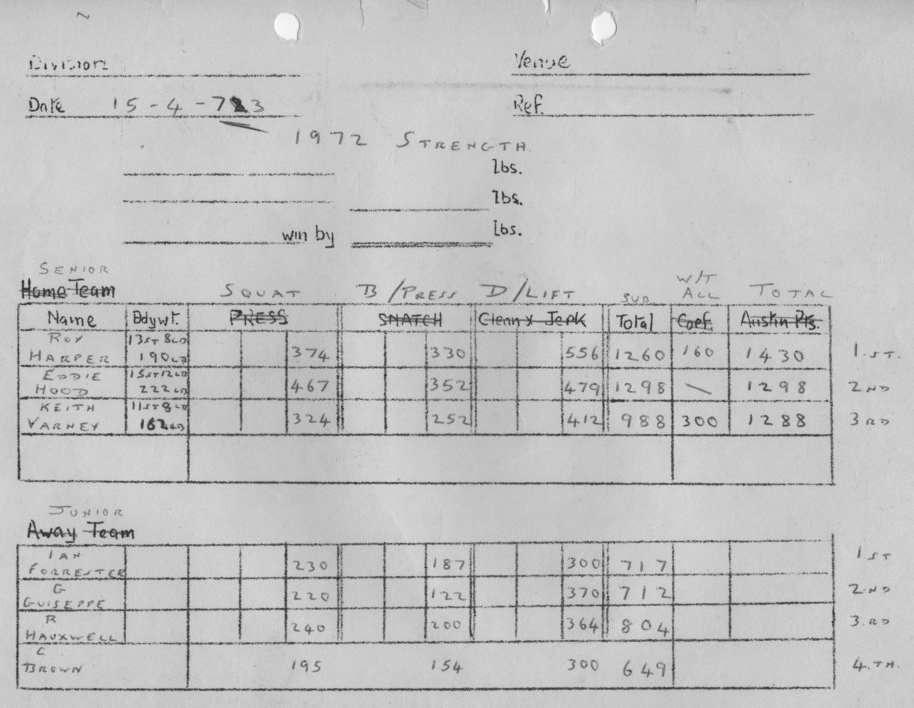 Division
Venue
Date 15-4-73
Ref.
1972 STRENGTH.
lbs.
lbs.
win by lbs.
SENIOR
Home Team SQUAT B/PRESS D/LIFT SUB W/T ALL TOTAL
Name Bdywt. PRESS SNATCH Clean & Jerk Total Coef. Austin Pts.
ROY 13ST 8LB
HARPER 190LB 374 330 556 1260 160 1430 1.ST.
EDDIE 15ST12LB
HOOD 222LB 467 352 479 1298 \ 1298 2ND
KEITH 11ST8LB
VARNEY 162LB 324 252 412 988 300 1288 3RD
JUNIOR
Away Team
IAN
FORRESTER 230 187 300 717 1ST
G
GUISEPPE 220 122 370 712 2.ND
R
HAUXWELL 240 200 364 804 3.RD
C
BROWN 195 154 300 649 4.TH.